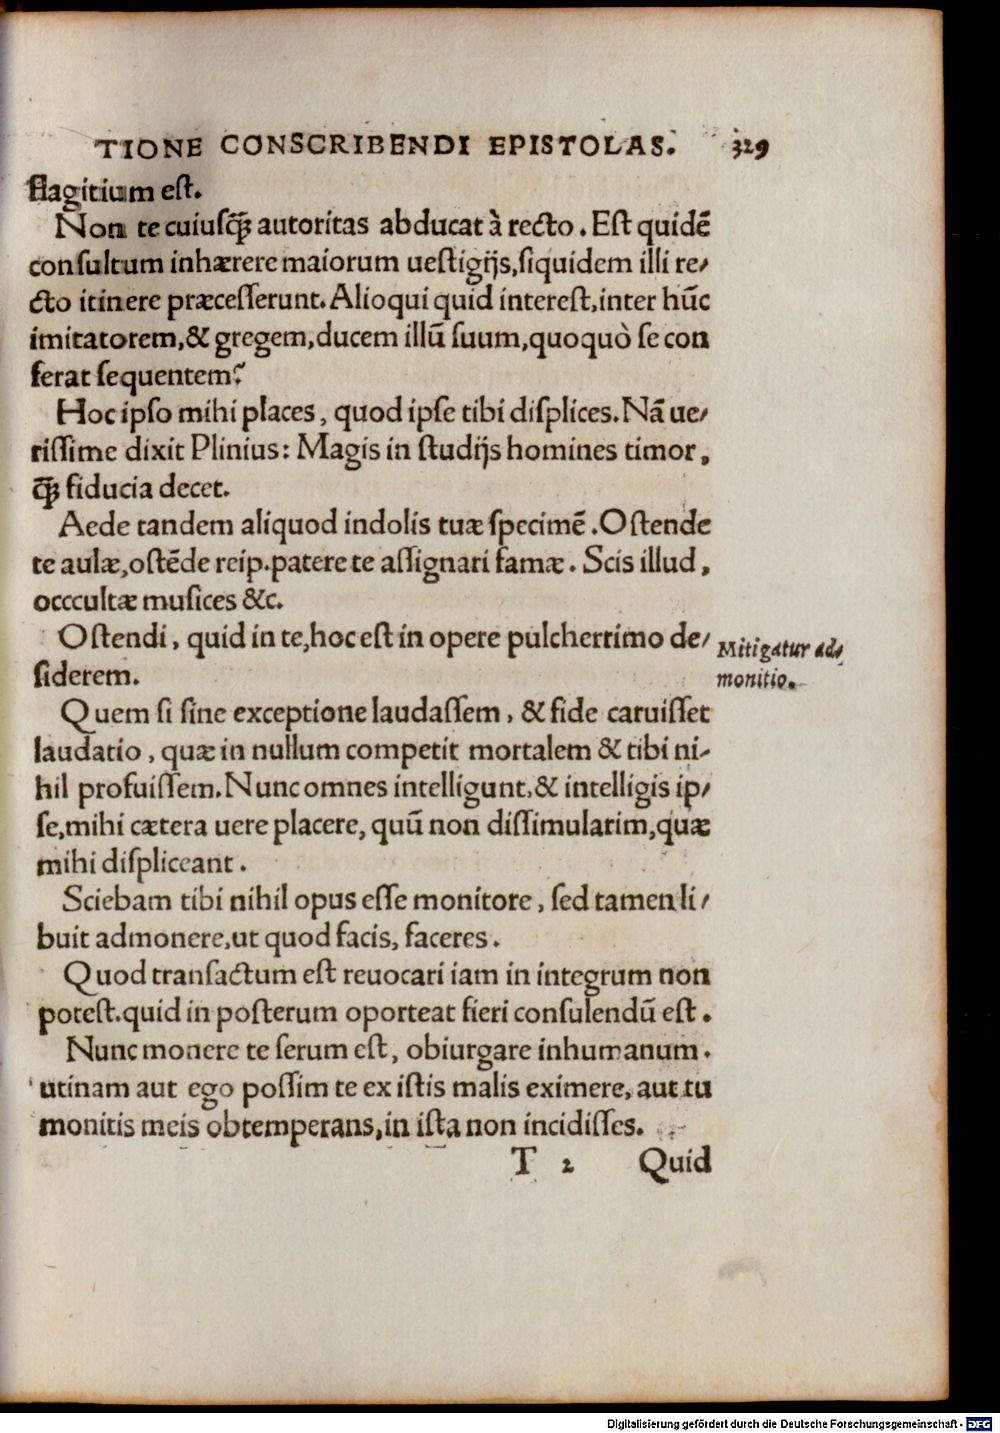 TIONE CONSCRIBENDI EPISTOLAS. 329
flagitium est.
Non te cuiusꝙ̃ autoritas abducat à recto. Est quidẽ
consultum inhærere maiorum uestigijs, siquidem illi re/
cto itinere præcesserunt. Alioqui quid interest, inter hũc
imitatorem, & gregem, ducem illũ suum, quoquò se con
ferat sequentem?
Hoc ipso mihi places, quod ipse tibi displices. Nã ue/
rissime dixit Plinius: Magis in studijs homines timor,
ꝙ̃ fiducia decet.
Aede tandem aliquod indolis tuæ specimẽ. Ostende
te aulæ, ostẽde reip. patere te assignari famæ. Scis illud,
occcultæ musices &c.
Ostendi, quid in te, hoc est in opere pulcherrimo de/
Mitigatur ad/
siderem.
monitio.
Quem si sine exceptione laudassem, & fide caruisset
laudatio, quæ in nullum competit mortalem & tibi ni-
hil profuissem. Nunc omnes intelligunt, & intelligis ip/
se, mihi cætera uere placere, quũ non dissimularim, quæ
mihi displiceant.
Sciebam tibi nihil opus esse monitore, sed tamen li/
buit admonere, ut quod facis, faceres.
Quod transactum est reuocari iam in integrum non
potest. quid in posterum oporteat fieri consulendũ est.
Nunc monere te serum est, obiurgare inhumanum.
utinam aut ego possim te ex istis malis eximere, aut tu
monitis meis obtemperans, in ista non incidisses.
T 2 Quid
Digitalisierung gefördert durch die Deutsche Forschungsgemeinschaft - DFG